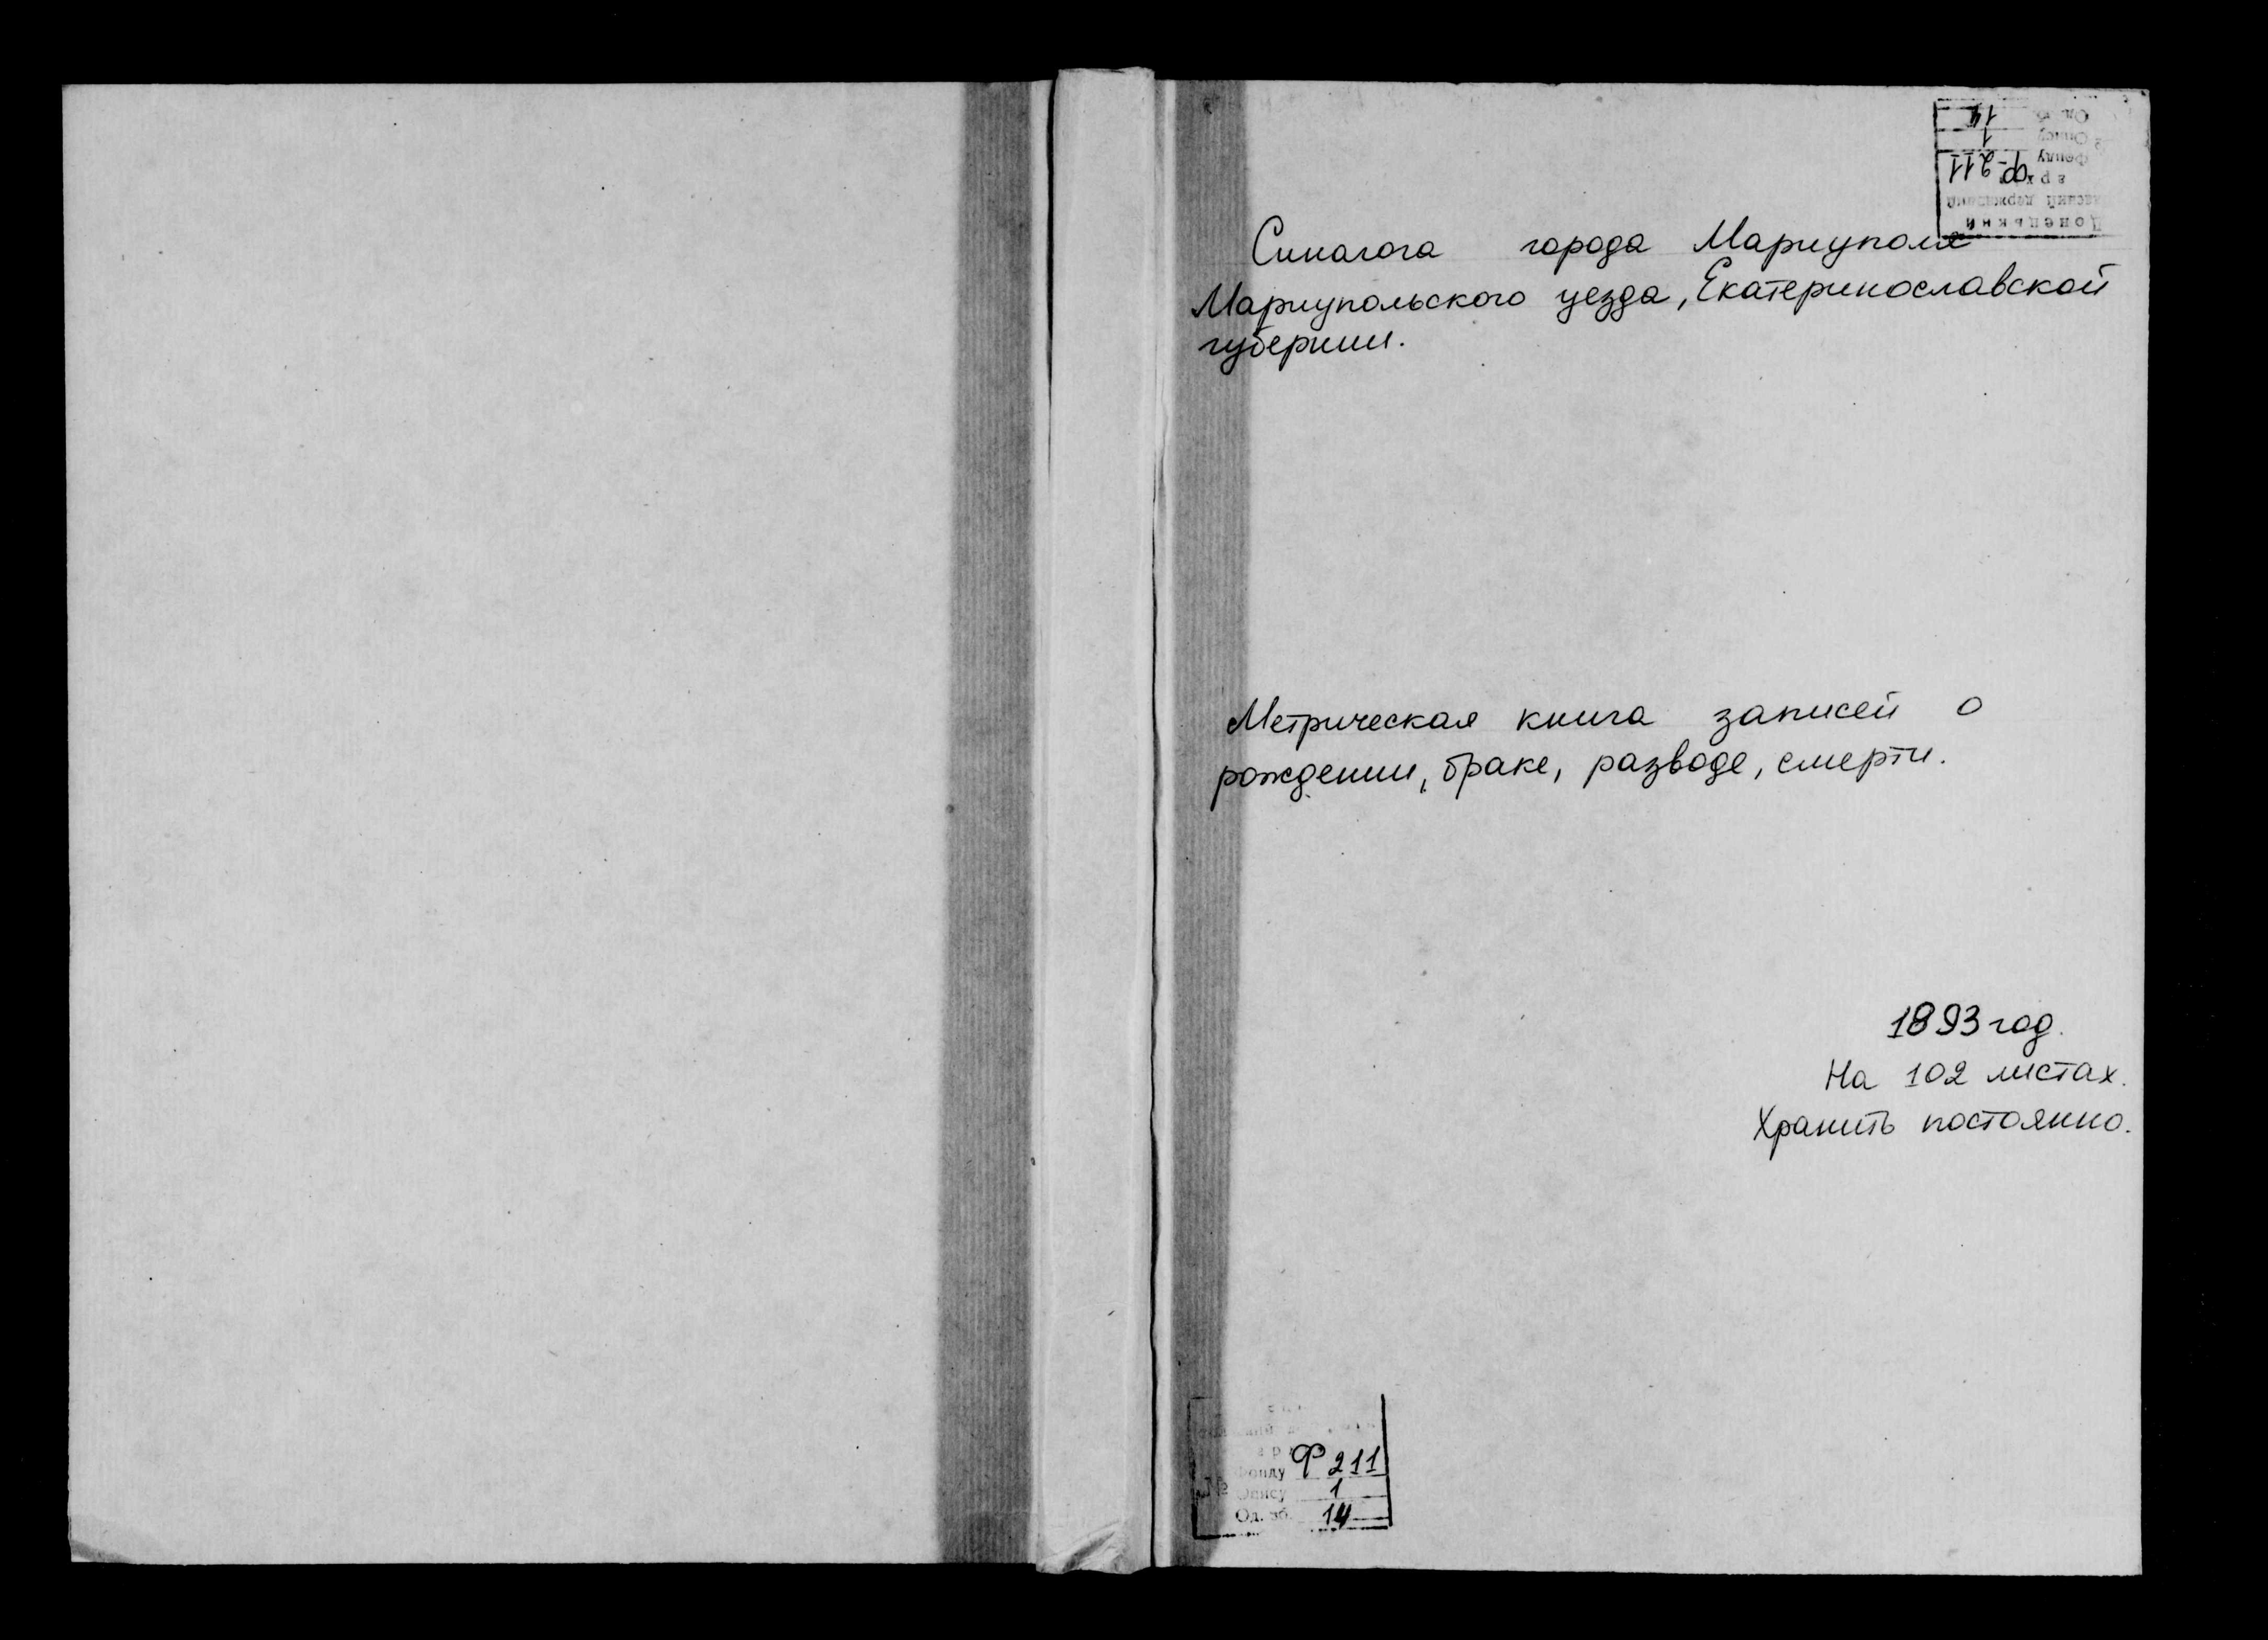 Донецький
державний
Фонду Ф-211
Опису 1
Од. зб. 14
Синагога города Мариуполя
Мариупольского уезда, Екатеринославской
губернии.
Метрическая книга записей о
рождении, браке, разводе, смерти.
1893 год.
На 102 листах.
Хранить постоянно.
Фонду Ф 211
№ Опису 1
Од. зб. 14